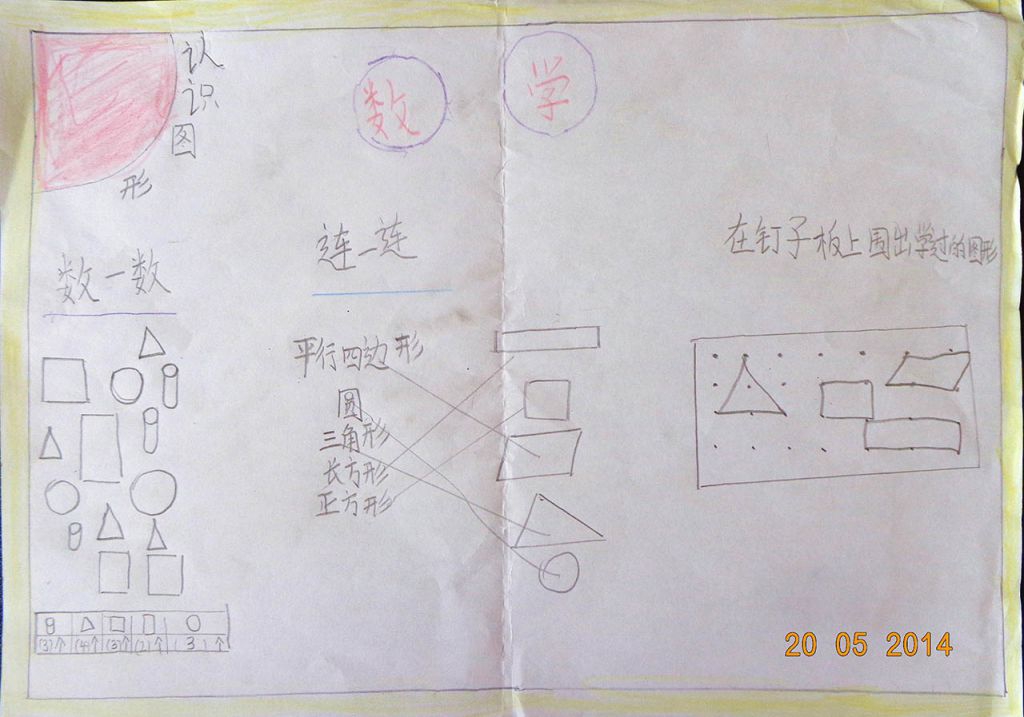 认识图形
数学
数一数
连一连
在钉子板上围出学过的图形
平行四边形
圆
三角形
长方形
正方形
(3)个 (4)个 (3)个 (2)个 (3)个
20 05 2014